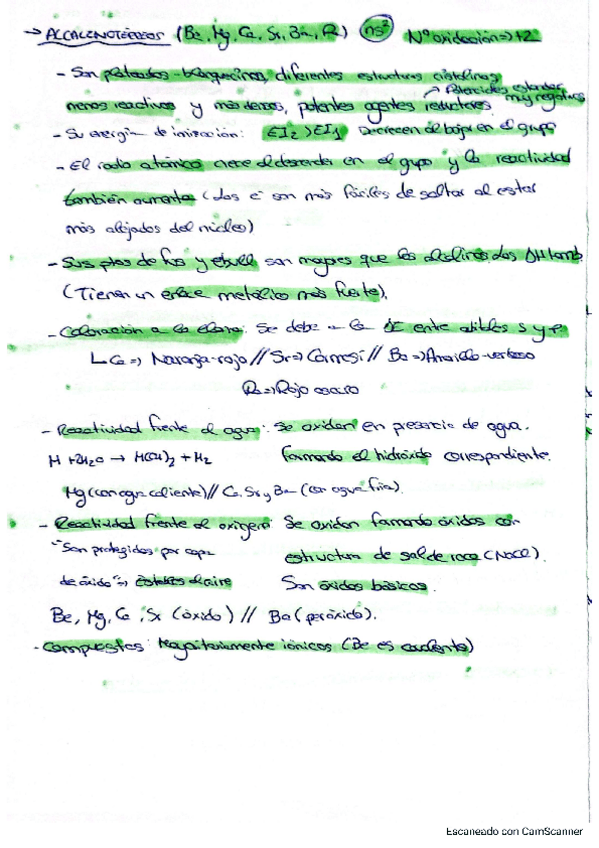 → ALCALINOTÉRREOS (Be, Mg, Ca, Sr, Ba, Ra) ns² Nº oxidación => +2
- Son plateados-blanquecinos, diferentes estructuras cristalinas,
→ Potenciales estándar muy negativos
menos reactivos y más densos, potentes agentes reductores.
- Su energía de ionización: EI₂ > EI₁ Decrecen al bajar en el grupo
- El radio atómico crece al descender en el grupo y la reactividad
también aumenta (los e⁻ son más fáciles de saltar al estar
más alejados del núcleo)
- Sus ptos de fus y ebull son mayores que los alcalinos ΔH
(Tienen un enlace metálico más fuerte).
- Coloración a la llama: Se debe a la ΔE entre s y p
Ca => Naranja-rojo // Sr => Carmesí // Ba => Amarillo-verdoso
Ra => Rojo oscuro
- Reactividad frente al agua: Se oxidan en presencia de agua.
M + 2H₂O → M(OH)₂ + H₂ formando el hidróxido correspondiente.
Mg (con agua caliente) // Ca, Sr y Ba (con agua fría).
- Reactividad frente al oxígeno: Se oxidan formando óxidos con
"Son protegidos por capa estructura de sal de roca (NaCl).
de óxido" => estables al aire Son óxidos básicos.
Be, Mg, Ca, Sr (óxido) // Ba (peróxido).
- Compuestos: Mayoritariamente iónicos (Be es covalente)
Escaneado con CamScanner